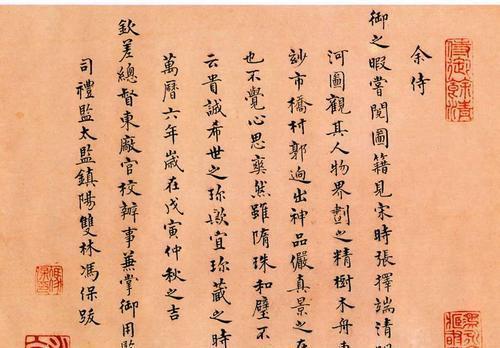 余侍
御之暇嘗閱圖籍見宋時張擇端清明
河圖觀其人物界劃之精樹木舟車
玅市橋村郭逈出神品儼真景之在
也不覺心思爽然雖隋珠和璧不
云貴誠希世之珎歟宜珎藏之時
萬曆六年歲在戊寅仲秋之吉
欽差總督東廠官校辦事兼掌御用監
司禮監太監鎮陽雙林馮保跋